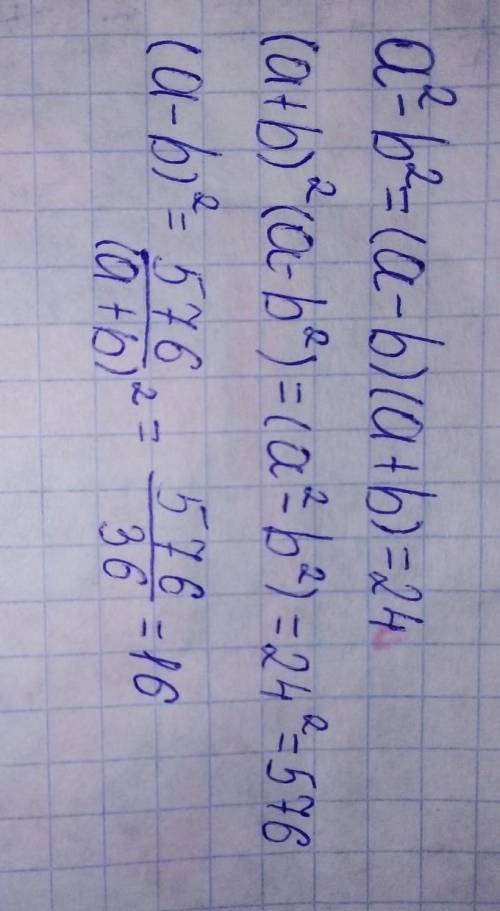 a² - b² = (a - b)(a + b) = 24
(a + b)² (a - b²) = (a² - b²) = 24² = 576
(a - b)² = 576/(a + b)² = 576/36 = 16